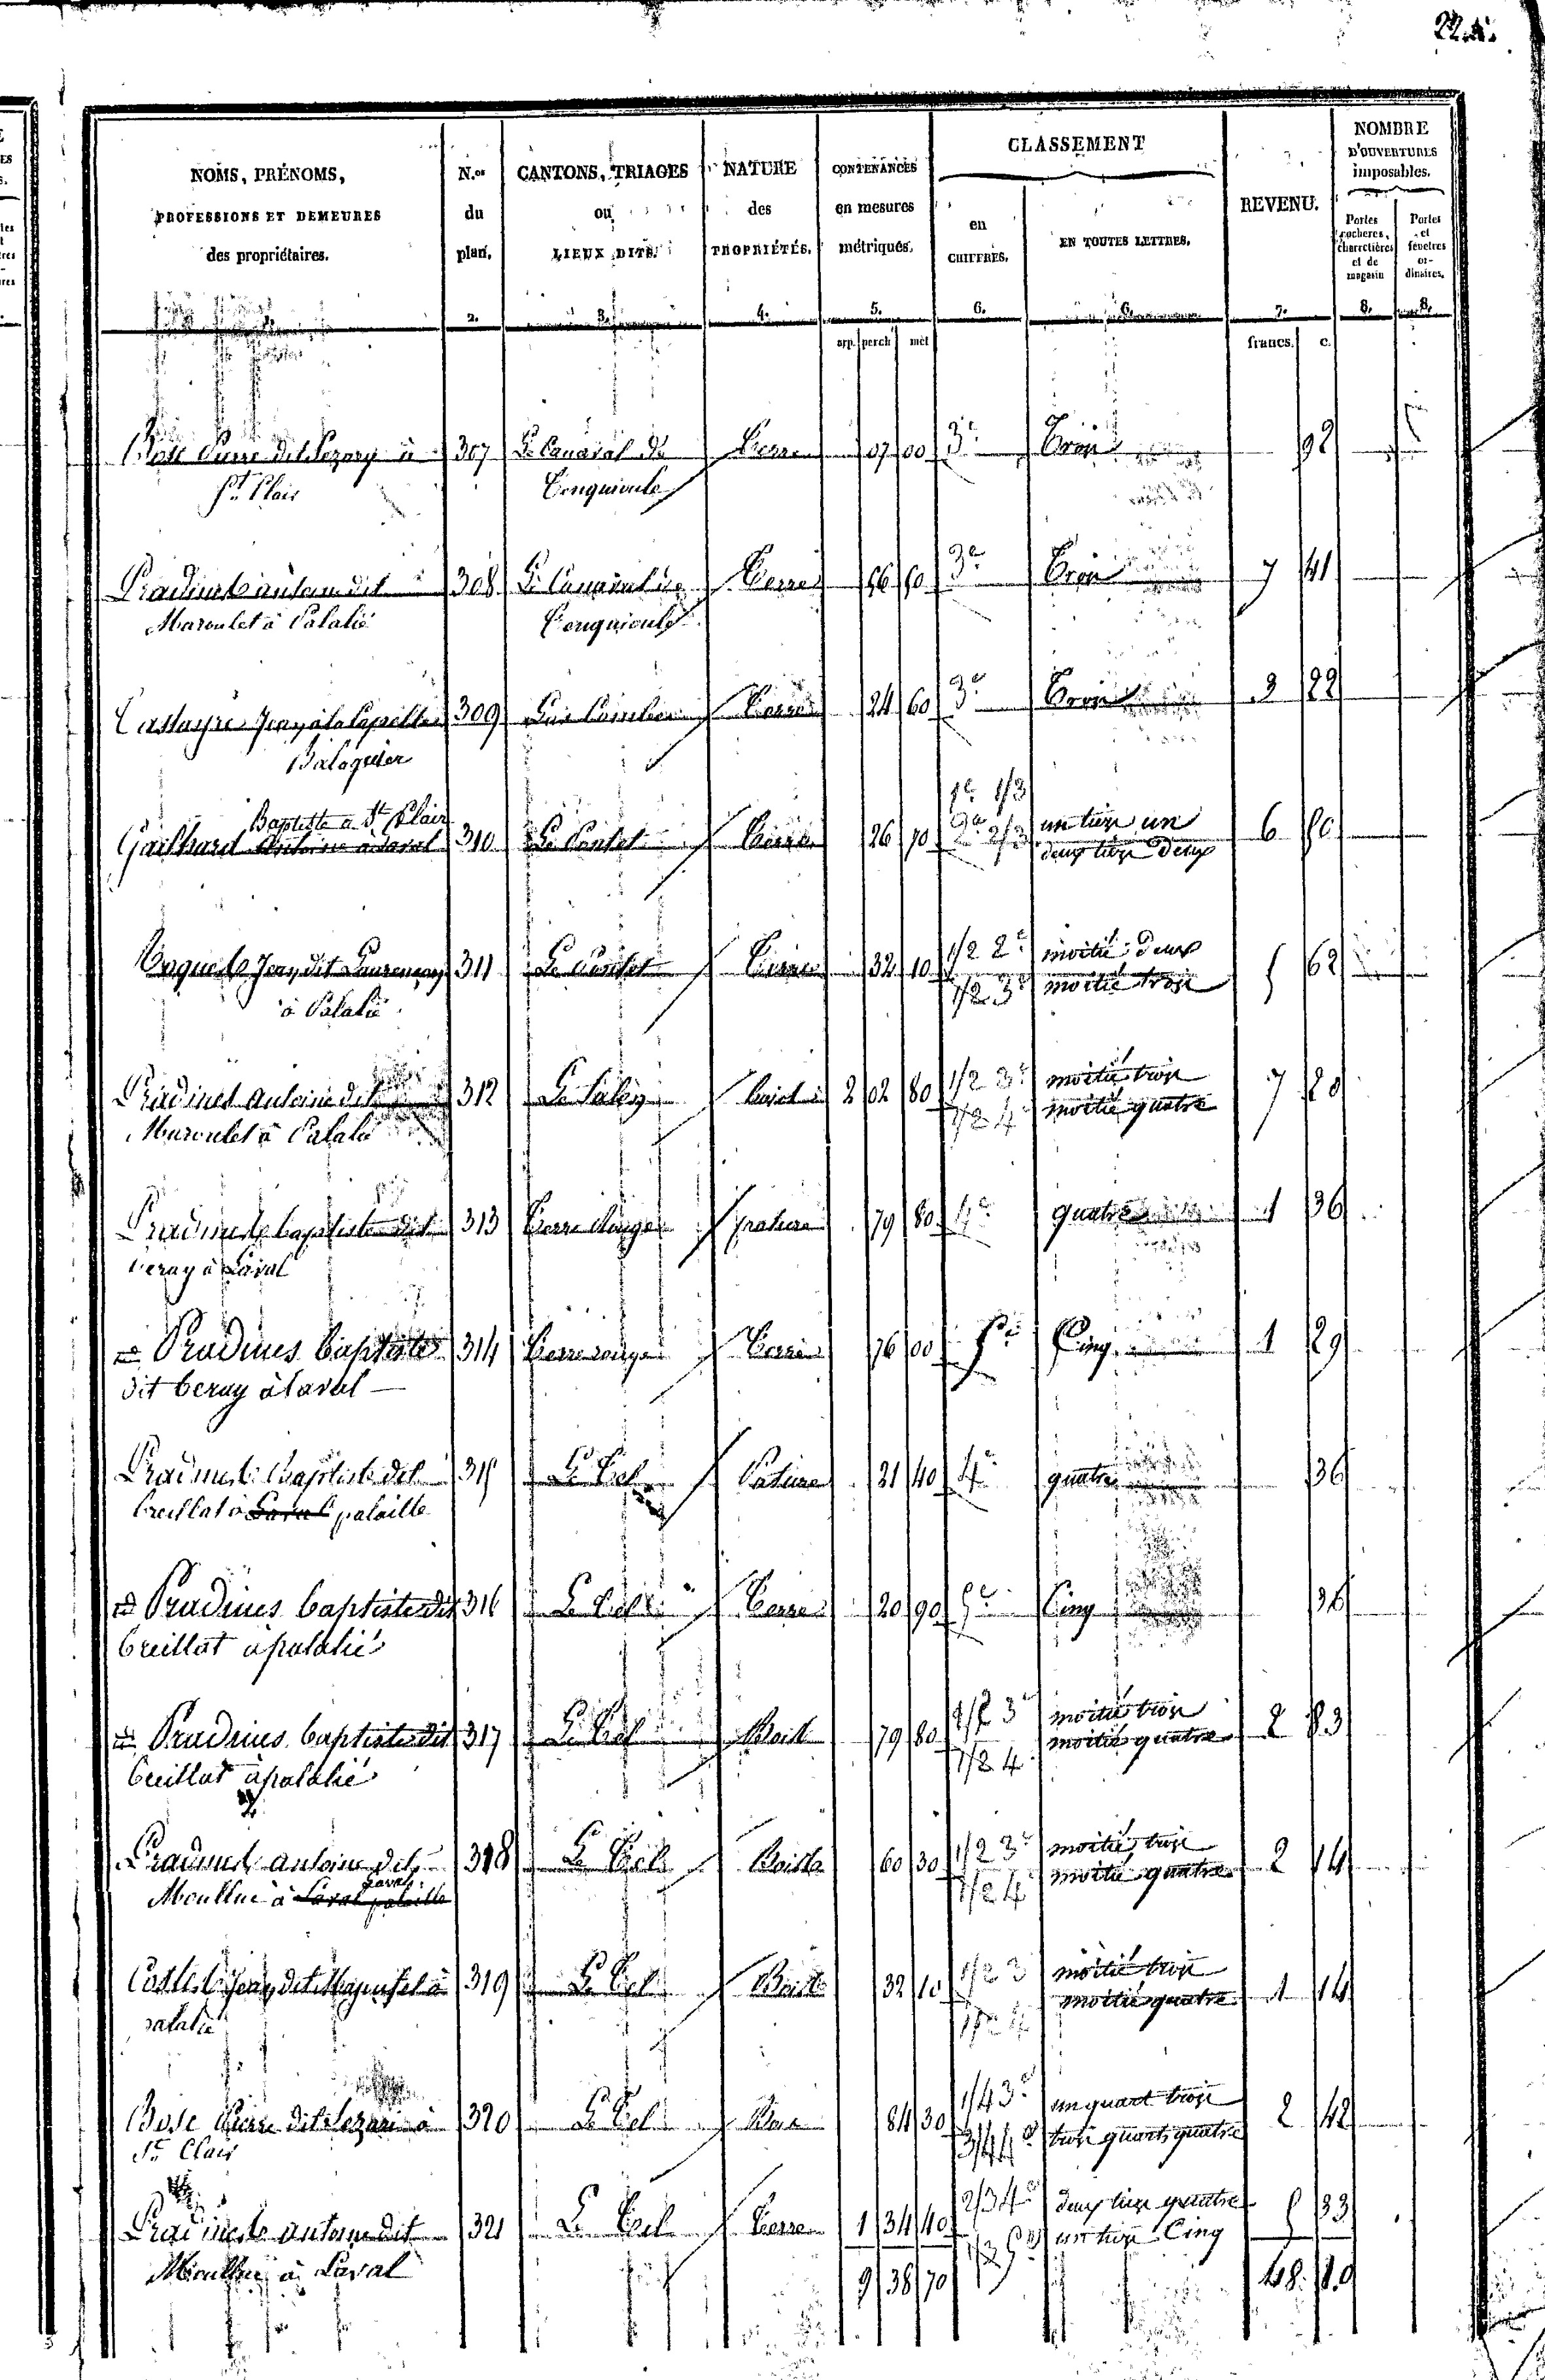 22
NOMS, PRÉNOMS, PROFESSIONS ET DEMEURES des propriétaires.
N.os du plan.
CANTONS, TRIAGES ou LIEUX DITS.
NATURE des PROPRIÉTÉS.
CONTENANCES en mesures métriques.
CLASSEMENT
en CHIFFRES.
EN TOUTES LETTRES.
REVENU.
NOMBRE D'OUVERTURES imposables.
Portes cocheres, charretières et de magasin
Portes et fenetres ordinaires.
2. 3. 4. 5. 6. 6. 7. 8. 8.
arp. perch mèt francs. c.
Pierre dit Lezary à 307 Le Canaval de Terre 07 00 3e Trois 92
St Clair Conquioule
Pradines antoine dit 308 Le Canaval de Terre 56 50 3e Trois 7 41
Maroulet à Palalié Conquioule
Cassayre Jean à la Capelle 309 Terre 24 60 3e Trois 3 22
Balaguier
Baptiste a St Clair 1e 1/3 un tiers un
Gailhard Antoine à Laval 310 Le Pontet Terre 26 70 2e 2/3 deux tiers deux 6 80
Jean dit 311 Le Pontet Terre 32 10 1/2 2e moitié deux 5 62
à Palalié 1/2 3e moitié trois
Pradines antoine dit 312 Bois 2 02 80 1/2 3e moitié trois 7 20
Maroulet à Palalié 1/2 4 moitié quatre
Pradines baptiste dit 313 Terre Rouge pature 79 80 4e quatre 1 36
à Laval
Pradines Baptiste 314 Terre rouge Terre 76 00 5e Cinq 1 29
dit beray à laval
Pradines Baptiste dit 315 Le Tiel Pature 21 40 4e quatre 36
breillat à Laval palaille
Pradines baptiste dit 316 Le Tiel Terre 20 90 5e Cinq 36
breillat à palalié
Pradines baptiste dit 317 Le Tiel Bois 79 80 1/2 3e moitié trois 2 83
breillat à palalié 1/2 4 moitié quatre
Pradines antoine dit 318 Le Tiel Bois 60 30 1/2 3e moitié trois 2 14
Moullne à Laval palaille Laval 1/2 4 moitié quatre
Jean dit 319 Le Tiel Bois 32 10 1/2 3 moitié trois 1 14
palalié 1/2 4 moitié quatre
Bosc Pierre dit Lezari à 320 Le Tiel Bois 84 30 1/4 3e un quart trois 2 42
St Clair 3/4 4e trois quarts quatre
Pradines antoine dit 321 Le Tiel Terre 1 34 40 2/3 4e deux tiers quatre 5 33
à Laval 1/3 5e un tiers Cinq
9 38 70 48 19